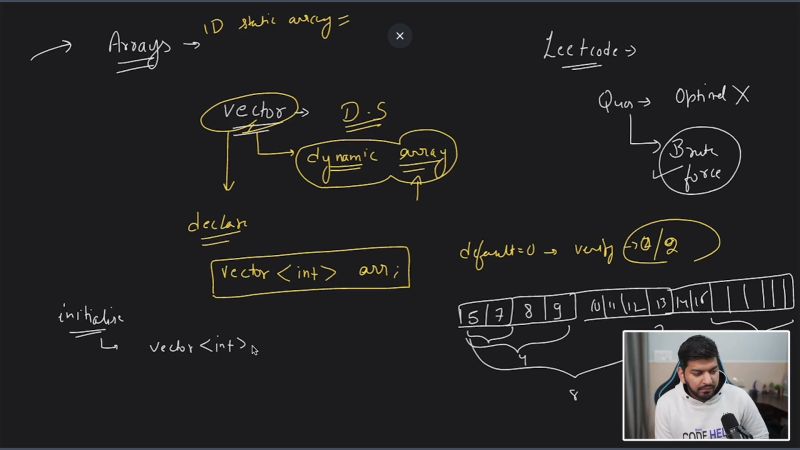 Arrays → 1D static array =
Leetcode →
vector → D.S
dynamic array
Ques → Optimal X
Brute
force
declare
vector <int> arr;
default=0 → verify →
initialise
vector <int>
5 7 8 9 10 11 12 13 14 15
4
8
CODE HELP